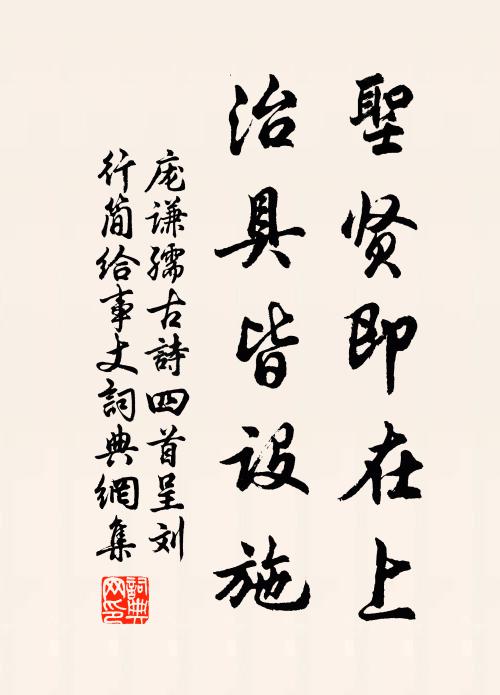 聖贤即在上
治具皆設施
庞谦孺古詩四首呈刘
行简给事丈詞典網集